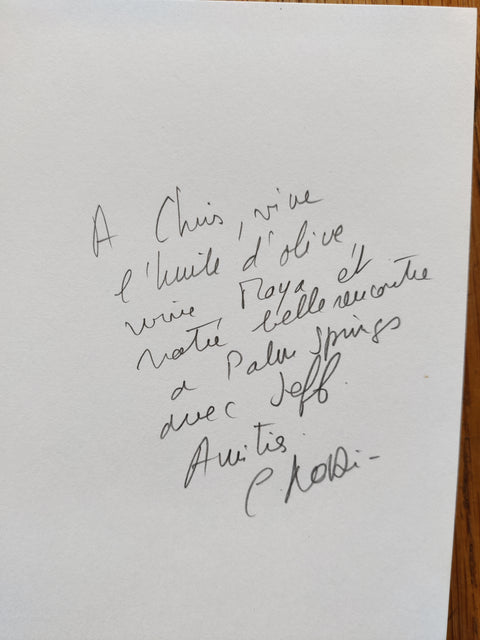 A Chris, vive
l'huile d'olive,
vive Maya et
notre belle rencontre
a Palm Springs
avec Jeff.
Amitiés.
C.